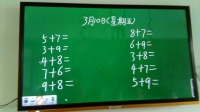 3月10日(星期五)
5+7= 8+7=
3+9= 6+9=
4+8= 3+8=
7+6= 4+7=
9+8= 5+9=